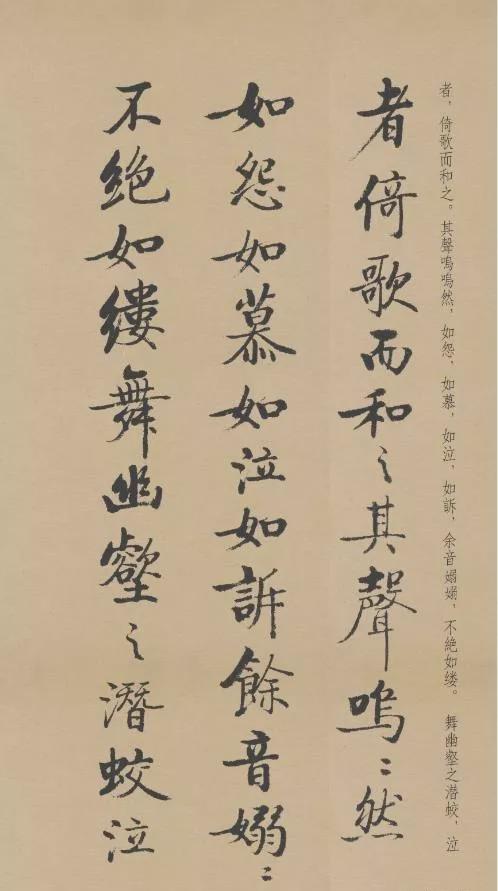 者，倚歌而和之。其聲嗚嗚然，如怨，如慕，如泣，如訴，余音嫋嫋，不絶如缕。　舞幽壑之潛蛟，泣
者倚歌而和之其聲嗚〻然
如怨如慕如泣如訴餘音嫋〻
不絶如縷舞幽壑之潛蛟泣